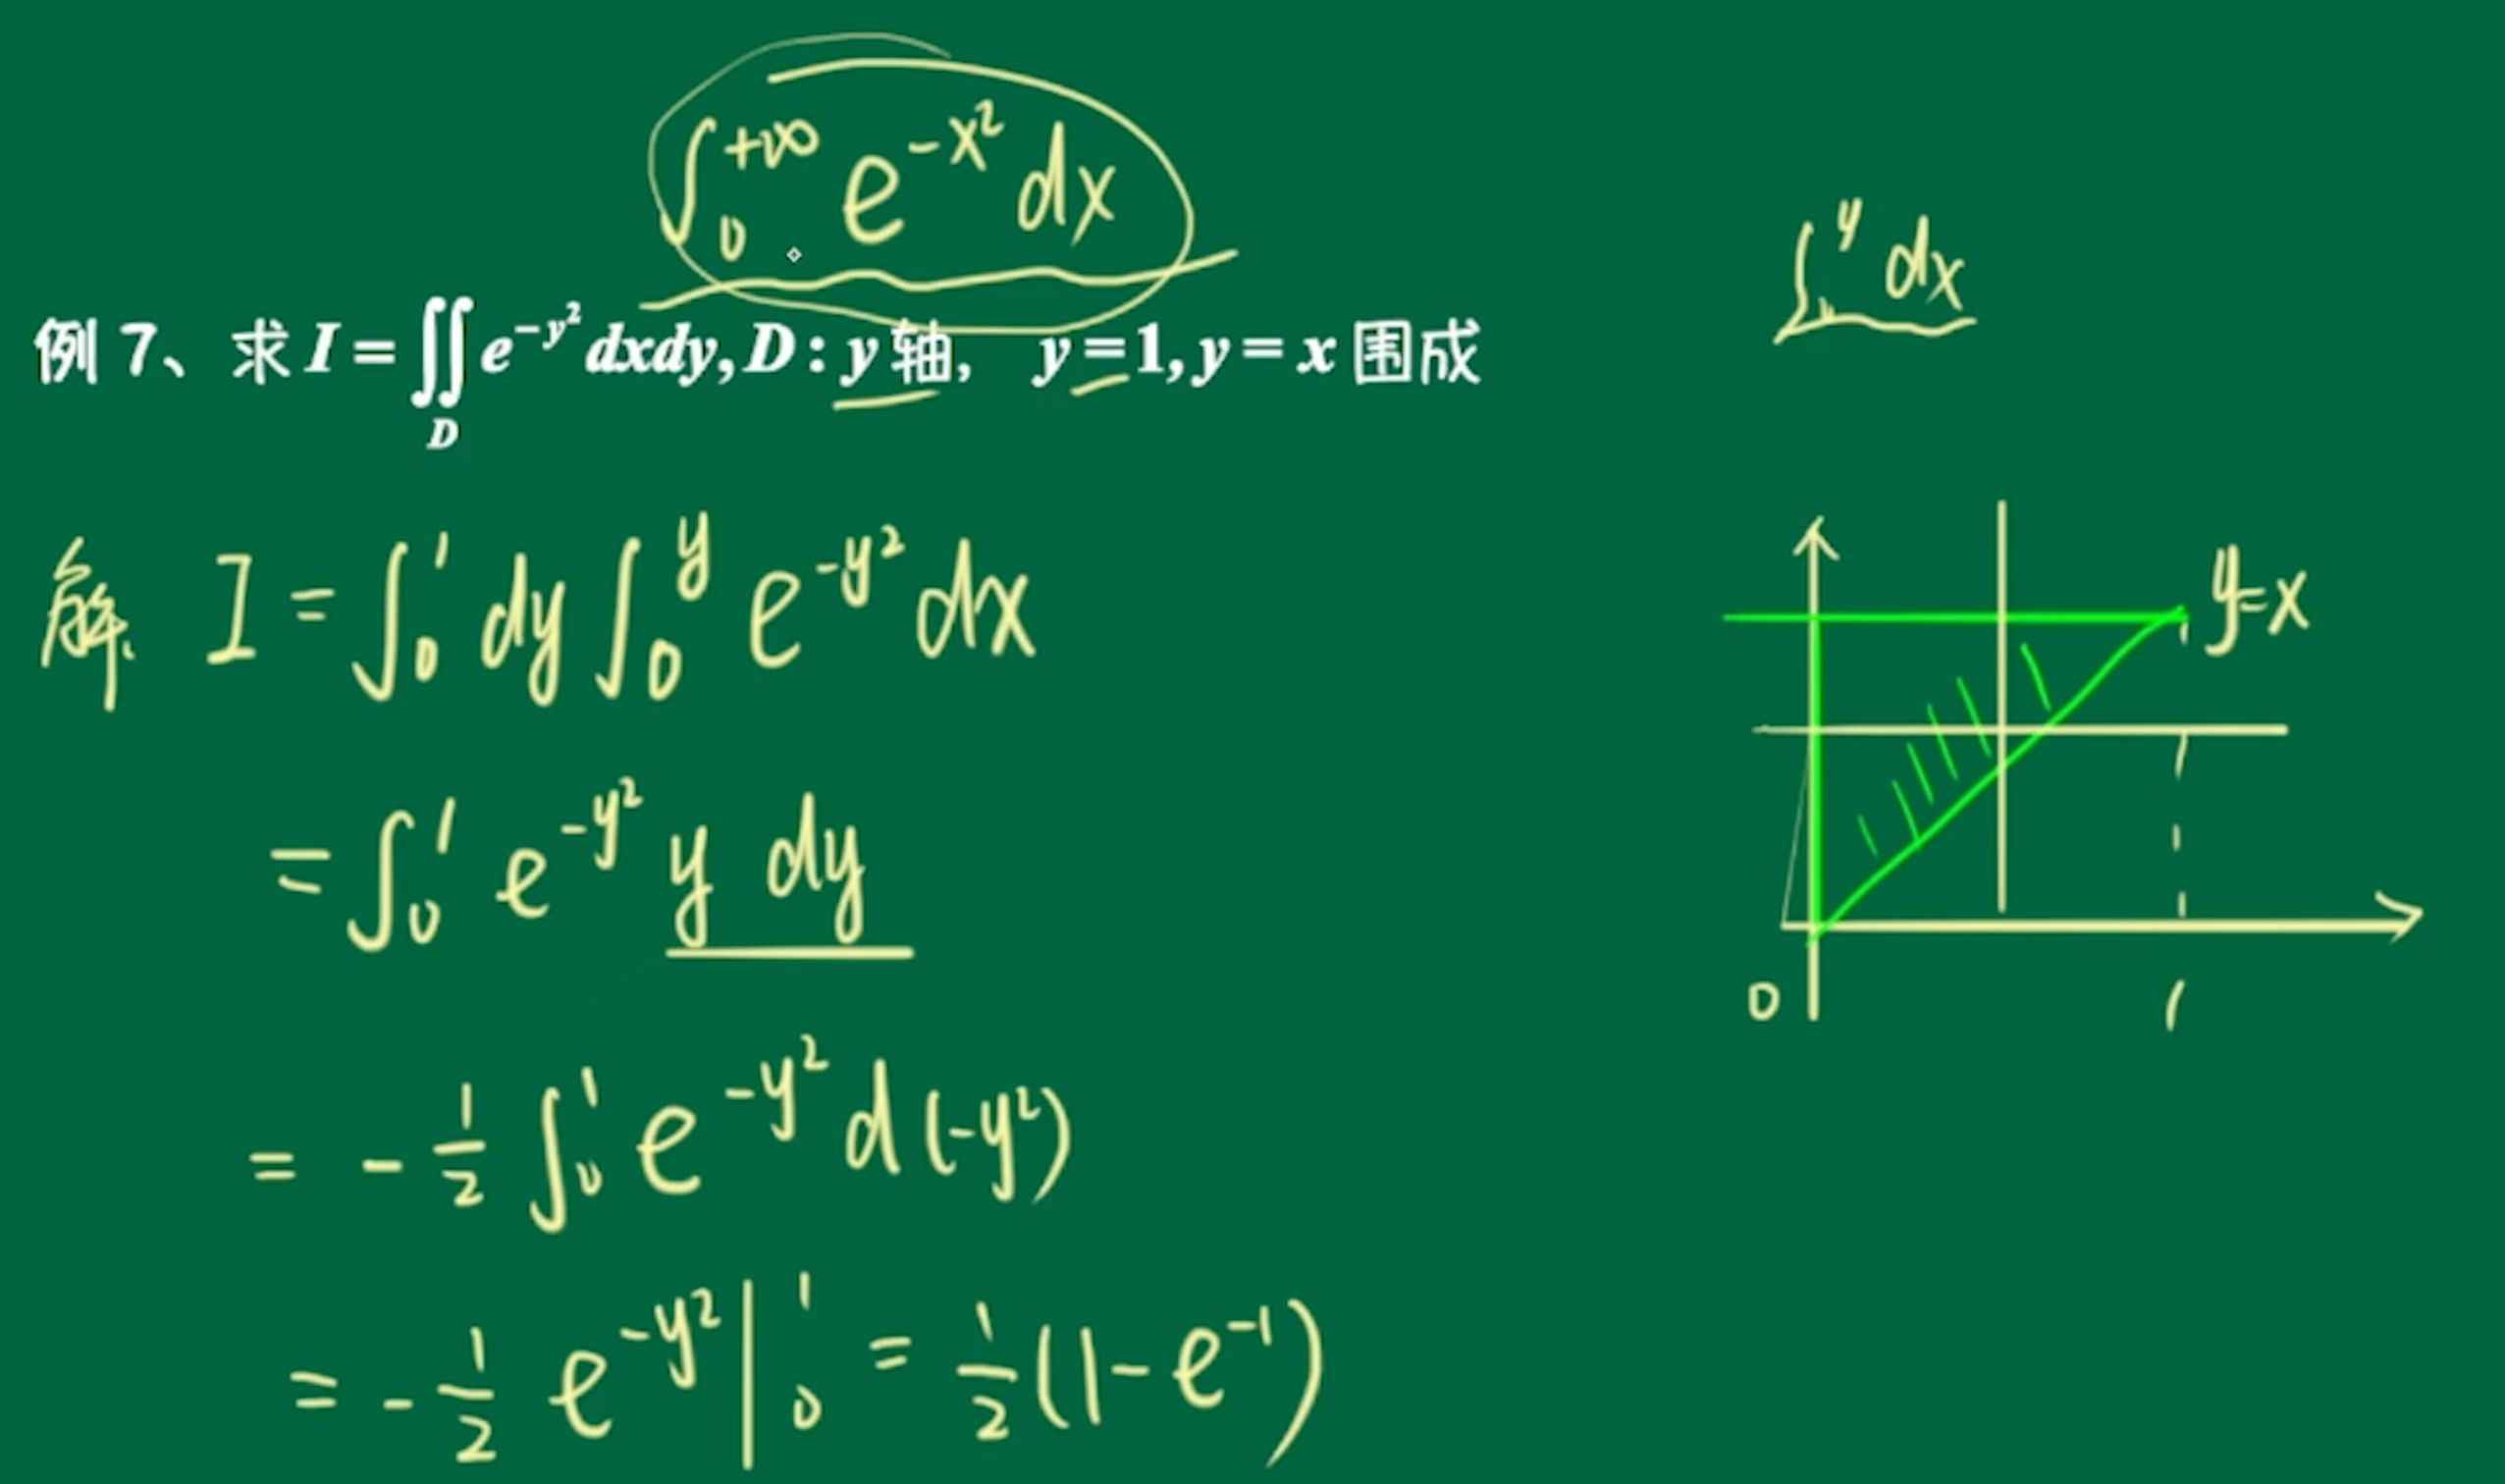 ∫₀^{+∞} e^{-x²} dx
∫₀^y dx
例 7、求 I = ∬_D e^{-y²} dxdy, D : y 轴, y = 1, y = x 围成
解 I = ∫₀¹ dy ∫₀^y e^{-y²} dx
= ∫₀¹ e^{-y²} y dy
= - 1/2 ∫₀¹ e^{-y²} d(-y²)
= - 1/2 e^{-y²} |₀¹ = 1/2 (1 - e^{-1})
y=x
1
0
1